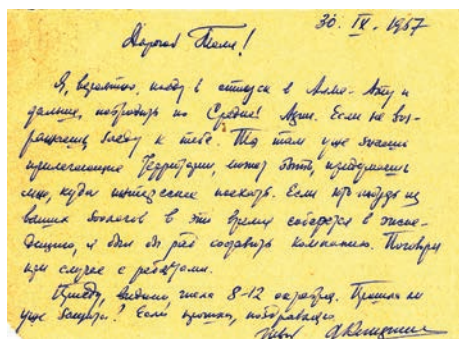 30. IX. 1967
Дорогой Толя!
Я, вероятно, поеду в отпуск в Алма-Ату и
дальше, побродить по Средней Азии. Если не воз-
ражаешь заеду к тебе. Ты там уже знаешь
прилегающие территории, может быть, предложишь
мне, куда интереснее поехать. Если кто-нибудь из
ваших зоологов в это время соберется в экспе-
дицию, я был бы рад составить компанию. Поговори
при случае с ребятами.
Приеду, видимо, числа 8-12 октября. Прошла ли
уже защита? Если прошла, поздравляю.